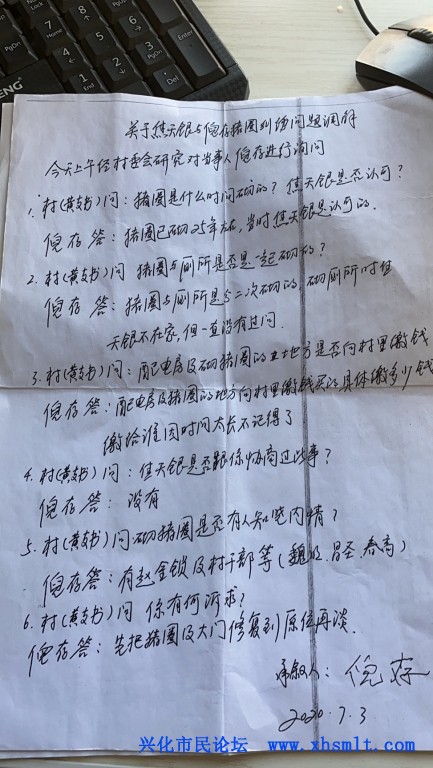 关于焦天银与倪存猪圈纠纷问题调解
今天上午经村委会研究对当事人倪存进行询问
1. 村(黄支书)问:猪圈是什么时间砌的?焦天银是否认可?
倪存答:猪圈已砌25年左右,当时焦天银是认可的.
2. 村(黄支书)问 猪圈与厕所是否是一起砌的?
倪存答:猪圈与厕所是分二次砌的,砌厕所时焦
天银不在家,但一直没有过问.
3. 村(黄支书)问:配电房及砌猪圈的土地方是否向村里缴钱
倪存答:配电房及猪圈的地方向村里缴钱买的,具体缴多少钱
缴给谁因时间太长不记得了
4. 村(黄支书)问:焦天银是否跟你协商过此事?
倪存答:没有
5. 村(黄支书)问砌猪圈是否有人知晓内情?
倪存答:有赵金锁及村干部等(魏 昌圣、春高)
6. 村(黄支书)问 你有何诉求?
倪存答:先把猪圈及大门修复到原位再谈.
承叙人:倪存
2020.7.3
兴化市民论坛 www.xhsmlt.com
PgDn
End
Del